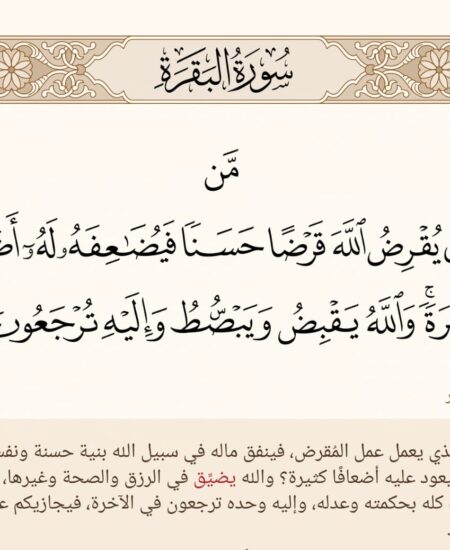 سُورَةُ البَقَرَةِ
مَّن
يُقْرِضُ ٱللَّهَ قَرْضًا حَسَنًا فَيُضَٰعِفَهُۥ لَهُۥٓ
وَٱللَّهُ يَقْبِضُ وَيَبْصُۜطُ وَإِلَيْهِ تُرْجَعُونَ
يعمل عمل المُقرض، فينفق ماله في سبيل الله بنية حسنة
يعود عليه أضعافًا كثيرة؟ والله يضيِّق في الرزق والصحة وغيرها،
كله بحكمته وعدله، وإليه وحده ترجعون في الآخرة، فيجازيكم